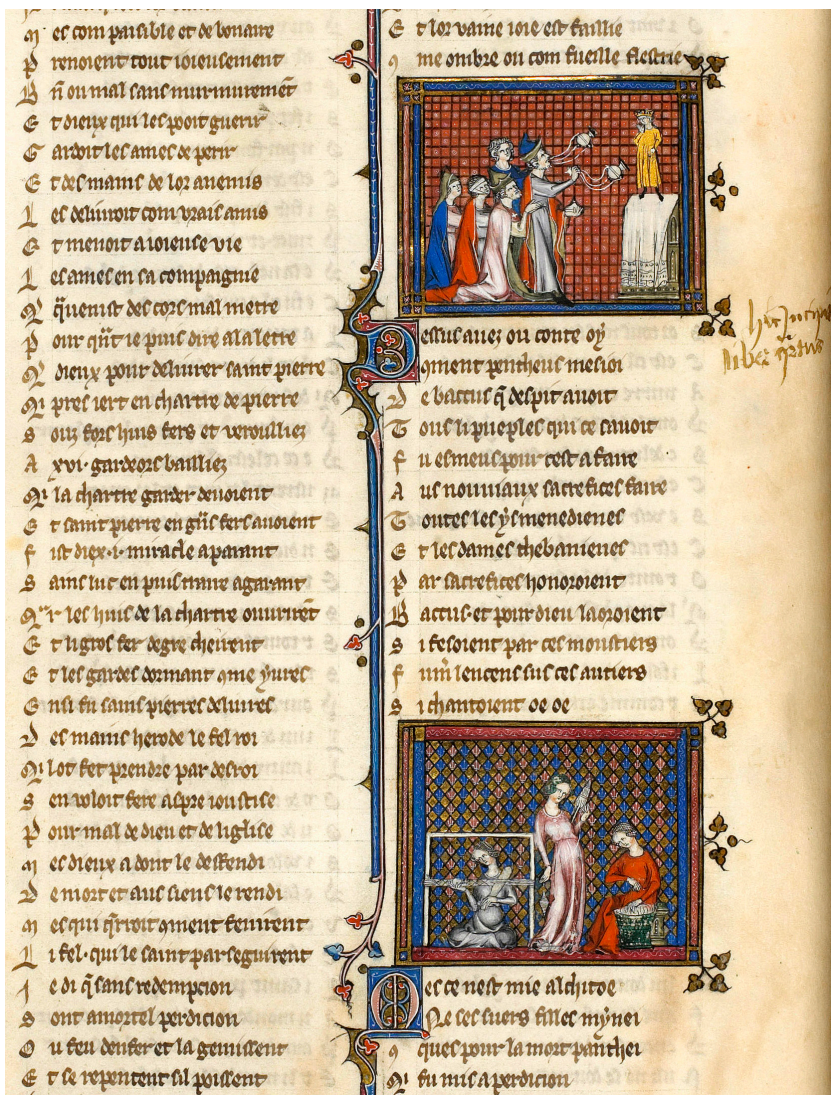 M es com paisible et de bonaire
P renoient tout ioieusement
B ñ ou mal sans murmuremēt
E t dieux qui les pooit guerir
G ardoit les ames de perir
E t des mains de lor anemis
L es deliuroit com vrais amis
E t menoit a ioieuse vie
L es ames en sa compaignie
Q̄ q̄uenist des cors mal metre
P our q̄nt ie puis dire a la letre
Q̄ dieux pour deliurer saint pierre
Qi pres iert en chartre de pierre
S ouz fors huis fers et veroulliez
A xvi. gardeors bailliez
Qi la chartre garder deuoient
E t saint pierre en gñs fers auoient
F ist diex .i. miracle aparant
S ains luc en puis traire a garant
Qr les huis de la chartre ouurirēt
E t li gros fer de gre cheirent
E t les gardes dormant 9me yures
E nsi fu sains pierres deliures
D es mains herode le fel roi
Qi lot fet prendre par desroi
S en voloit fere aspre ioustise
P our mal de dieu et de liglise
M es dieux adont le deffendi
D e mort et aus siens le rendi
M es qui q̄rroit 9ment fenirent
L i fel. qui le saint parseguirent
I e di q̄ sans redempcion
S ont a mortel perdicion
O u feu denfer et la gemissent
E t se repentent sil poissent
E t lor vaine ioie est faillie
9 me ombre ou com fueille flestrie
D essus auez ou conte oy
9ment pentheus mesioi
D e baccus q̄ despit auoit
T ous li pueples qui ce sauoit
F u esmeus pour cest afaire
A us nouuiaux sacrefices faire
T outes les ysmenedienes
E t les dames thebanienes
P ar sacrefices honoroient
B accus. et pour dieu laoroient
S i fesoient par ces moustiers
F umī lencens sus ces autiers
S i chantoient oe oe
hic Incipit
liber q̄rtus
M es ce nest mie alchitoe
Ne ses suers filles mynei
9 ques pour la mort panthei
Qi fu mis a perdicion